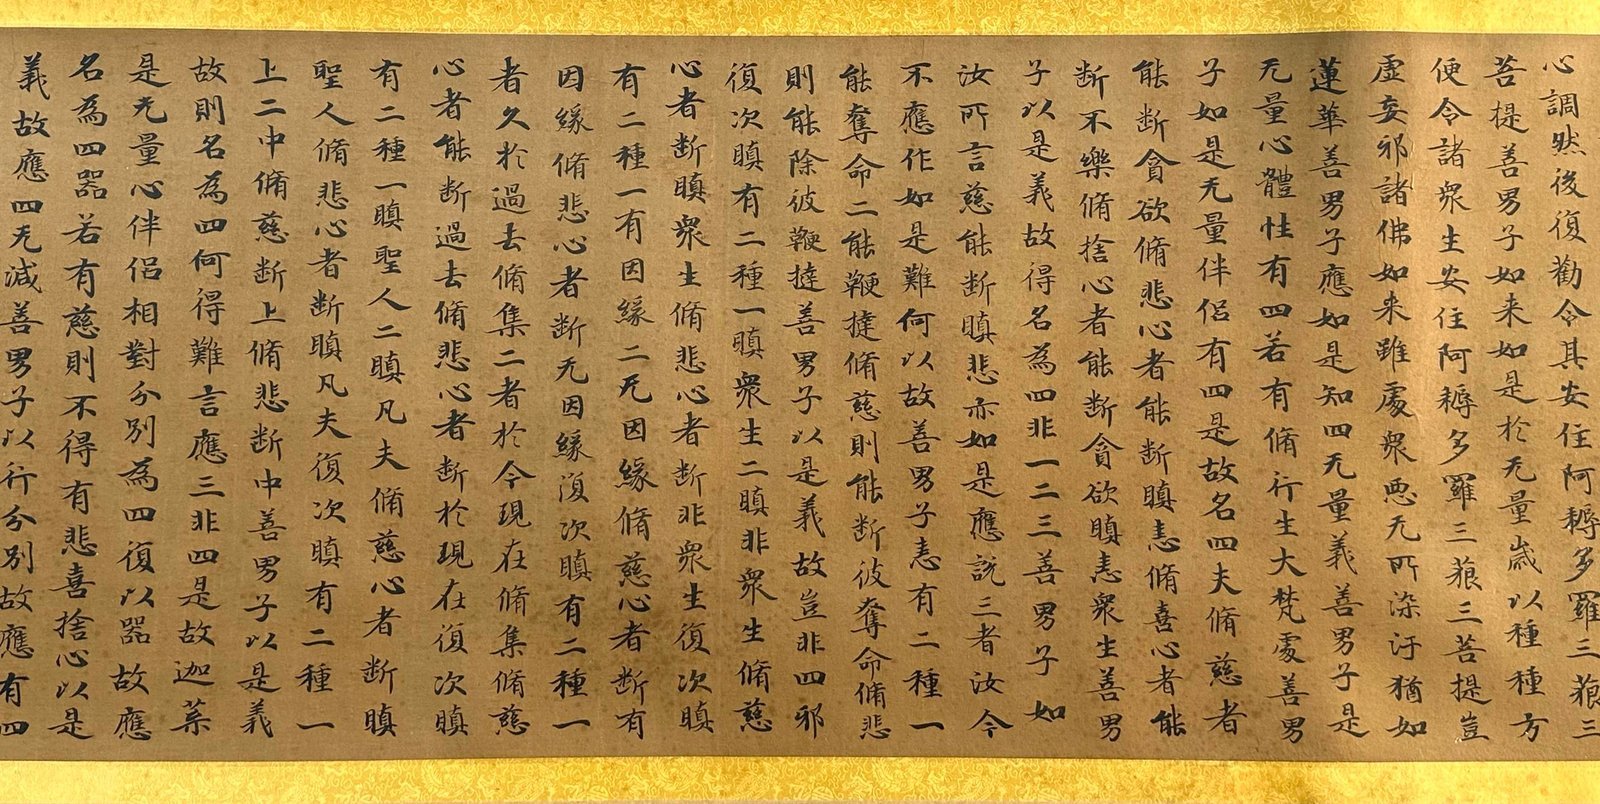 心調然後復勸令其安住阿耨多羅三藐三
菩提善男子如来如是於无量歲以種種方
便令諸衆生安住阿耨多羅三藐三菩提豈
虛妄邪諸佛如来雖處衆悪无所染汙猶如
蓮華善男子應如是知四无量義善男子是
无量心體性有四若有脩行生大梵處善男
子如是无量伴侣有四是故名四夫脩慈者
能断貪欲脩悲心者能断瞋恚脩喜心者能
断不樂脩捨心者能断貪欲瞋恚衆生善男
子以是義故得名為四非一二三善男子如
汝所言慈能断瞋悲亦如是應說三者汝今
不應作如是難何以故善男子恚有二種一
能奪命二能鞭撻脩慈則能断彼奪命脩悲
則能除彼鞭撻善男子以是義故豈非四邪
復次瞋有二種一瞋衆生二瞋非衆生脩慈
心者断瞋衆生脩悲心者断非衆生復次瞋
有二種一有因緣二无因緣脩慈心者断有
因緣脩悲心者断无因緣復次瞋有二種一
者久於過去脩集二者於今現在脩集脩慈
心者能断過去脩悲心者断於現在復次瞋
有二種一瞋聖人二瞋凡夫脩慈心者断瞋
聖人脩悲心者断瞋凡夫復次瞋有二種一
上二中脩慈断上脩悲断中善男子以是義
故則名為四何得難言應三非四是故迦葉
是无量心伴侣相對分別為四復以器故應
名為四器若有慈則不得有悲喜捨心以是
義故應四无減善男子以行分別故應有四